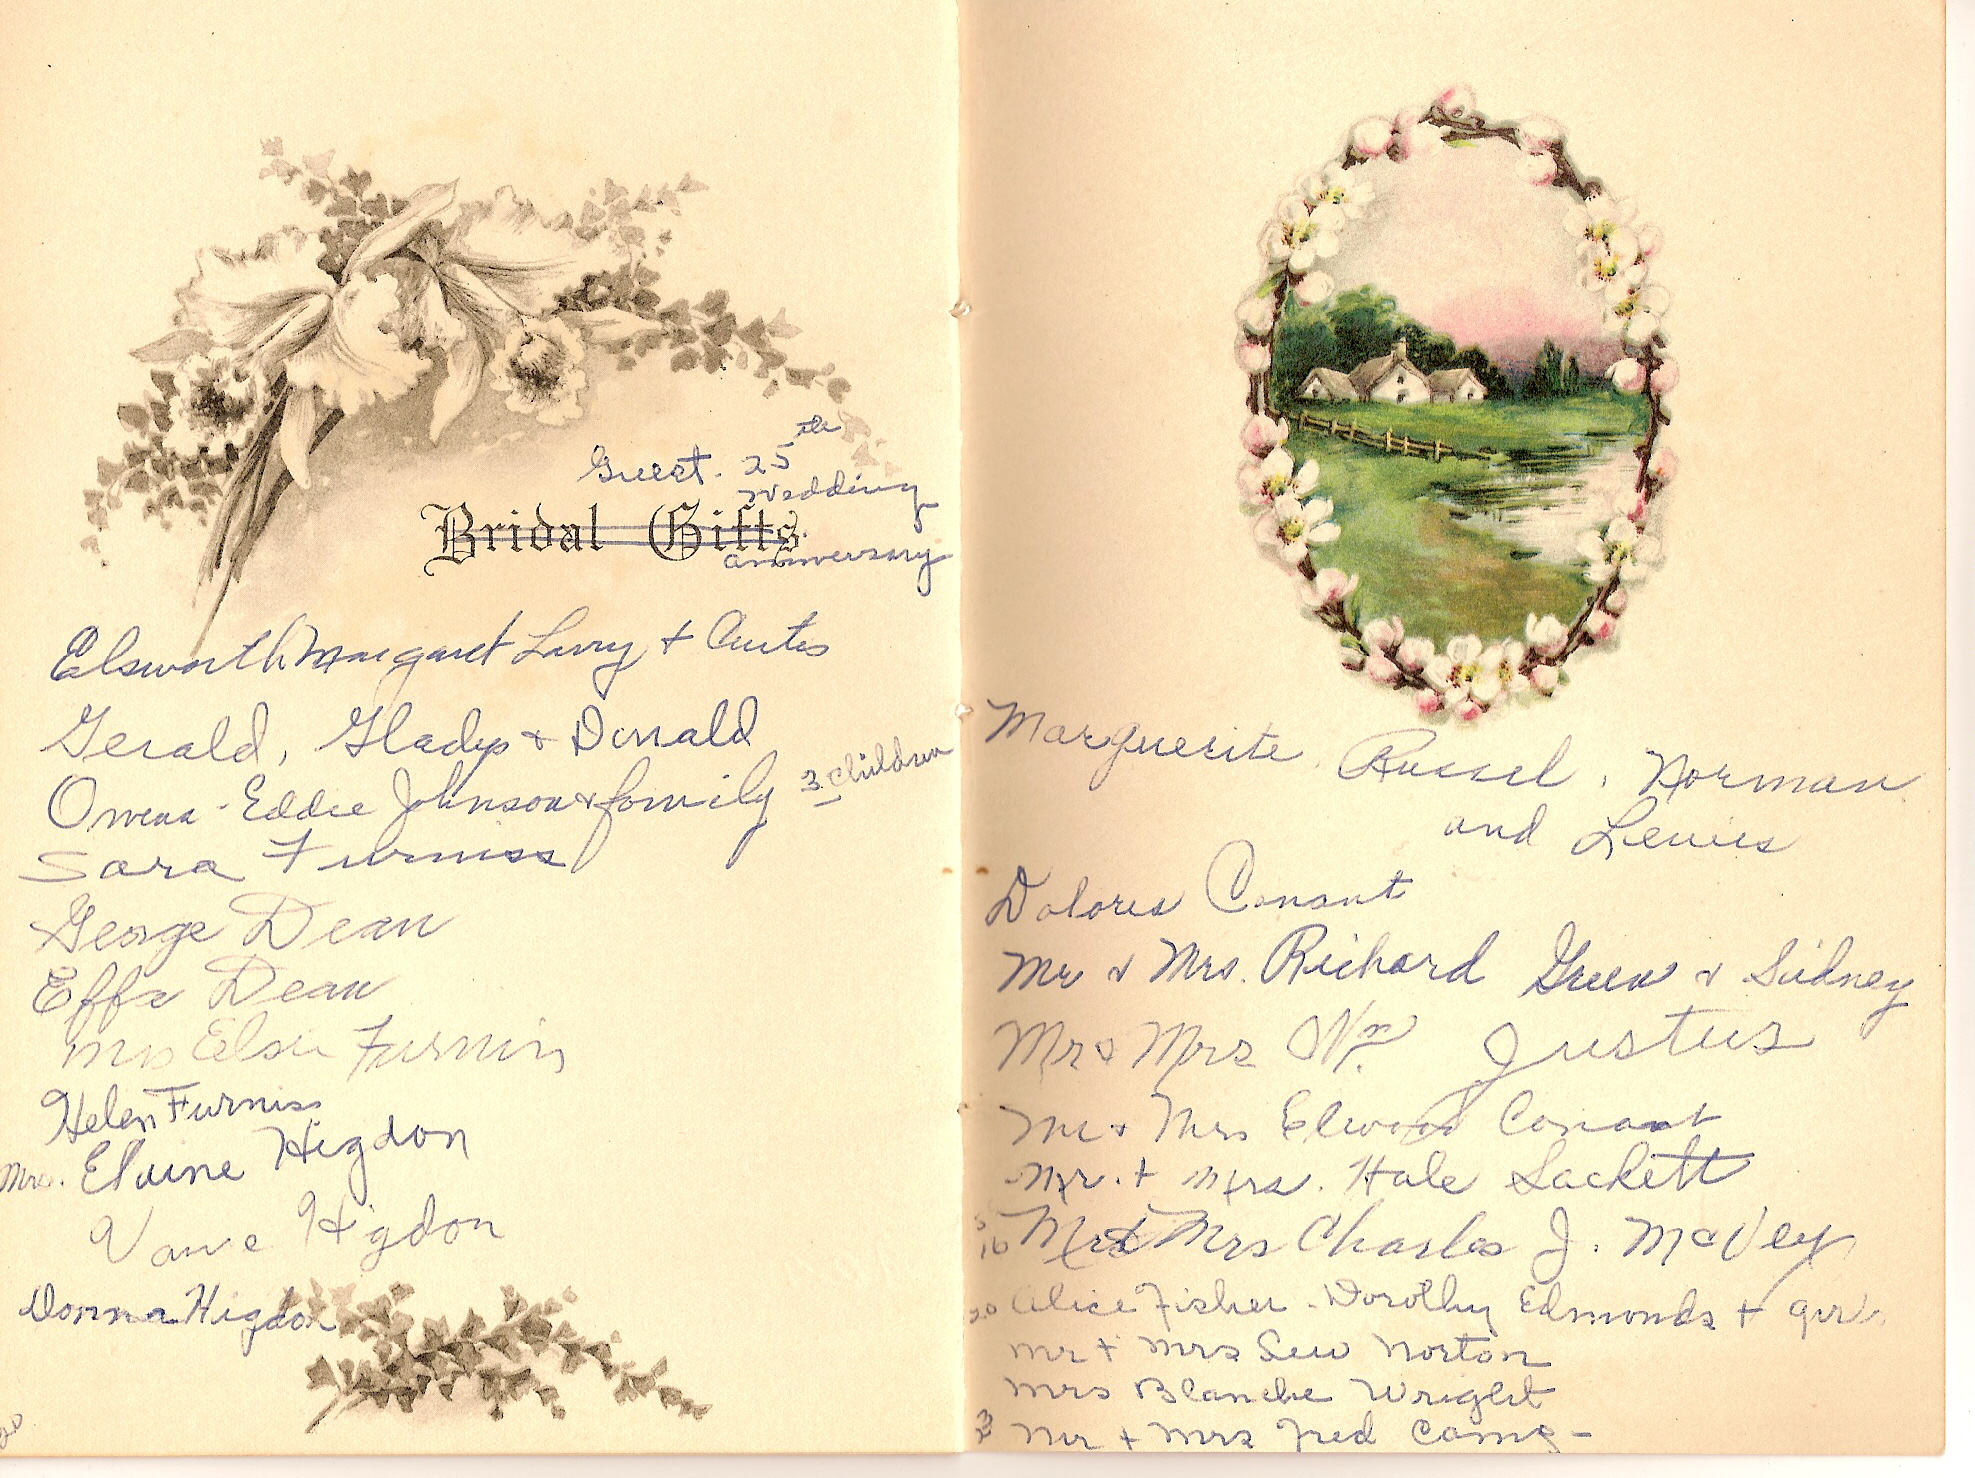 Guest. 25th
Wedding
Bridal Gifts
anniversary
Elsworth Margaret Larry + Curtis
Gerald, Gladys + Donald
Owena - Eddie Johnson & family 3 children
Sara Furniss
George Dean
Effa Dean
Mrs Elsie Furniss
Helen Furniss
Mrs. Elaine Higdon
Higdon
Donna Higdon
20
Marguerite, Russel, Norman
and Lewis
Dolores Conant
Mr & Mrs. Richard Green & Sidney
Mr & Mrs Wm Justus
Mr + Mrs Elwood Conant
Mr. + Mrs. Hale Sackett
16 Mr & Mrs Charles J. McVey
20 Alice Fisher - Dorothy Edmonds + girls
Mr + Mrs Lew Norton
Mrs Blanche Wright
Mr + Mrs Fred